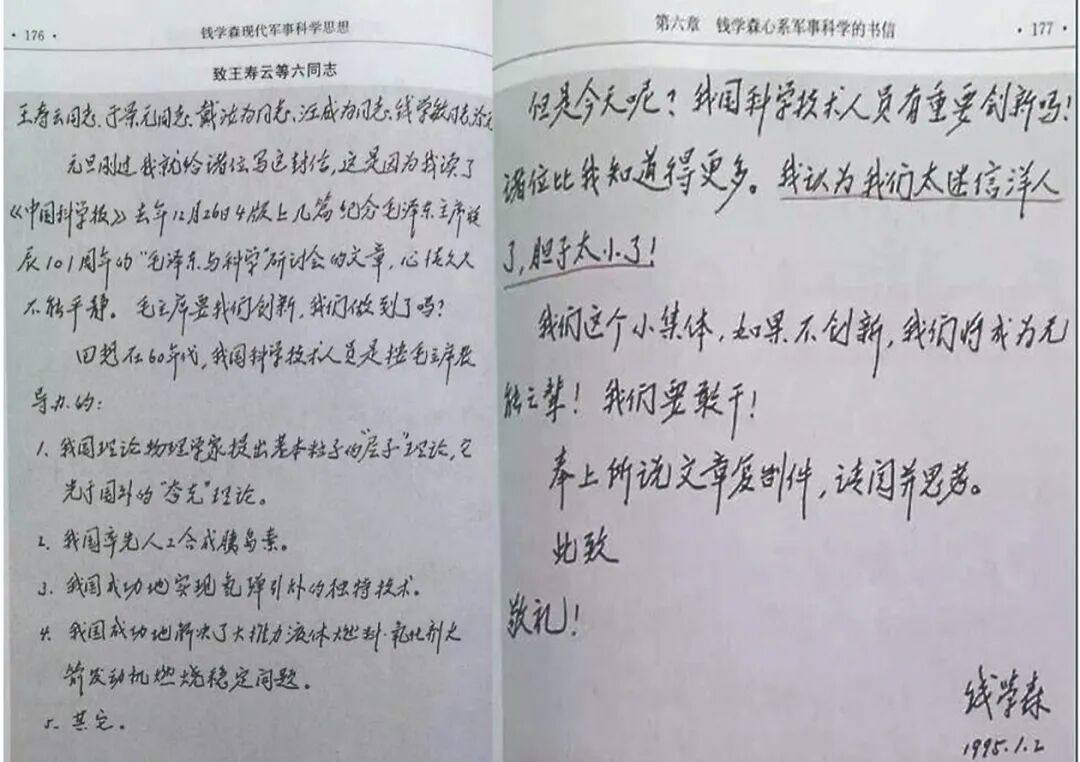 · 176 ·
钱学森现代军事科学思想
致王寿云等六同志
王寿云同志、于景元同志、戴汝为同志、汪成为同志、钱学敏同志、涂元
元旦刚过我就给诸位写这封信，这是因为我读了
《中国科学报》去年12月26日4版上几篇纪念毛泽东主席诞
辰101周年的“毛泽东与科学”研讨会的文章，心情久久
不能平静。毛主席要我们创新，我们做到了吗？
回想在60年代，我国科学技术人员是按毛主席教
导办的：
1. 我国理论物理学家提出基本粒子的“层子”理论，它
先于国外的“夸克”理论。
2. 我国率先人工合成胰岛素。
3. 我国成功地实现氢弹引爆的独特技术。
4. 我国成功地解决了大推力液体燃料·氧化剂火
箭发动机燃烧稳定问题。
5. 其它。
第六章 钱学森心系军事科学的书信
· 177 ·
但是今天呢？我国科学技术人员有重要创新吗！
诸位比我知道得更多。我认为我们太迷信洋人
了，胆子太小了！
我们这个小集体，如果不创新，我们将成为无
能之辈！我们要敢干！
奉上所说文章复制件，请阅并思考。
此致
敬礼！
钱学森
1995.1.2